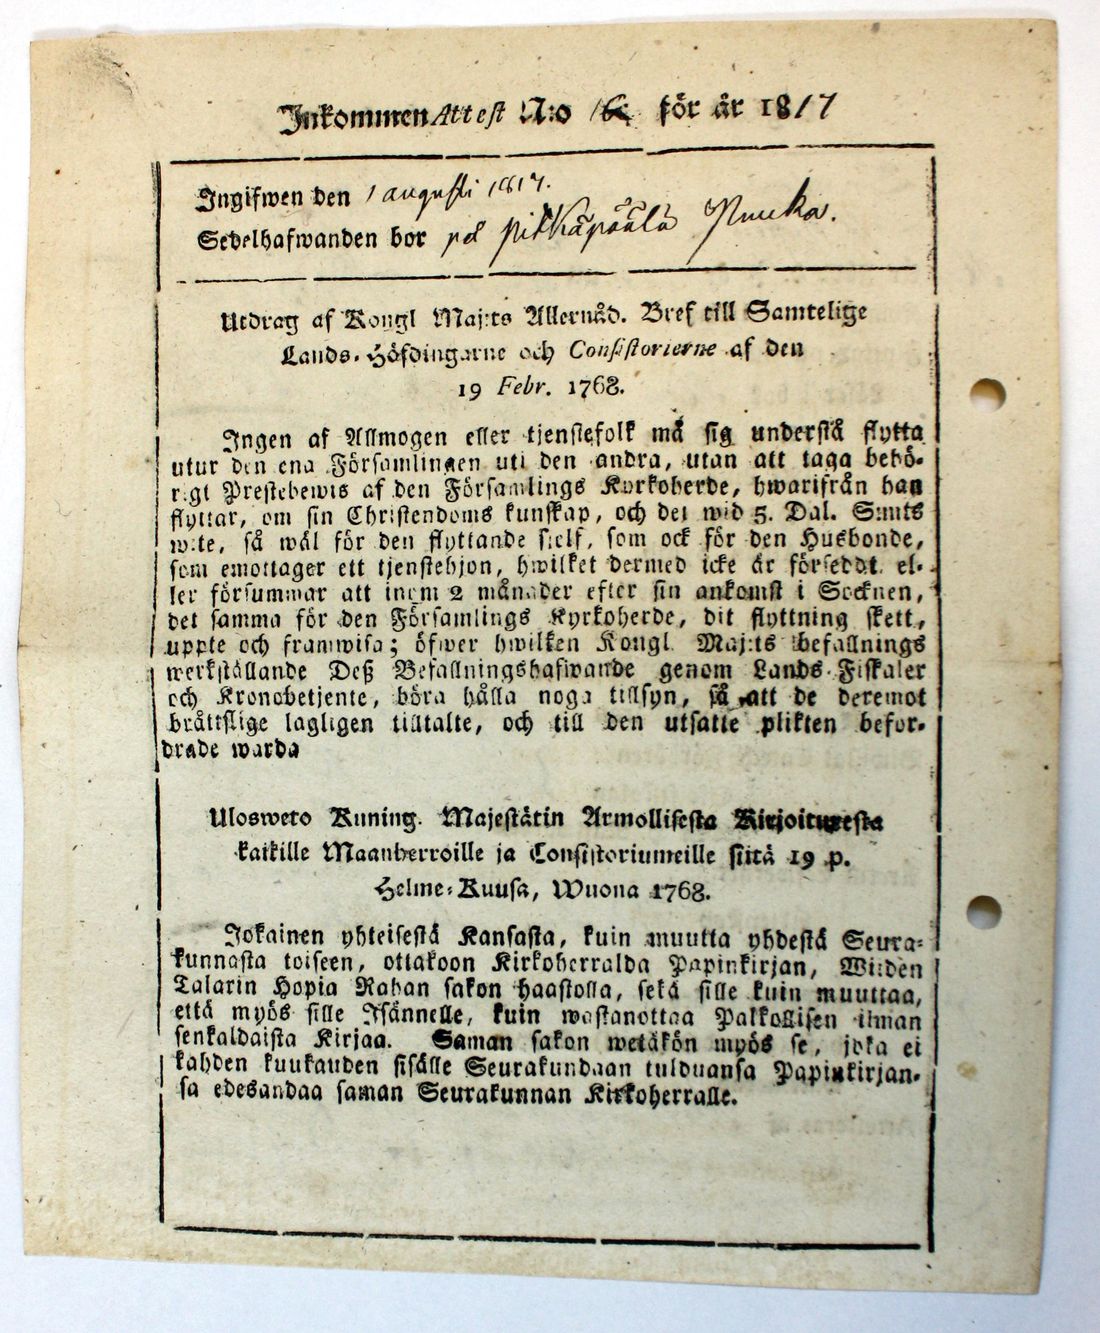 Inkommen Attest N:o 16 för år 1817
Ingifwen den 1 augusti 1817.
Sedelhafwanden bor på Pitkäpäälä
Utdrag af Kongl Maj:ts Allernåd. Bref till Samtelige
Lands-Höfdingarne och Consistorierne af den
19 Febr. 1768.
Ingen af Allmogen eller tjenstefolk må sig understå flytta
utur den ena Församlingen uti den andra, utan att taga behö-
rigt Prestebewis af den Församlings Kyrkoherde, hwarifrån han
flyttar, om sin Christendoms kunskap, och det wid 5. Dal. S:mts
wite, så wäl för den flyttande sielf, som ock för den Husbonde,
som emottager ett tjenstehjon, hwilket dermed icke är försedd, el-
ler försummar att inom 2 månader efter sin ankomst i Socknen,
det samma för den Församlings Kyrkoherde, dit flyttning skett,
uppte och framwisa; öfwer hwilken Kongl Maj:ts befallnings
werkställande Deß Befallningshafwande genom Lands-Fiskaler
och Kronobetjente, böra hålla noga tillsyn, så att de deremot
bråttslige lagligen tilltalte, och till den utsatte plikten befor-
drade warda
Ulosweto Kuning. Majestätin Armollisesta Kirjoituxesta
kaikille Maanherroille ja Consistoriumeille siitä 19 p.
Helme-Kuusa, Wuona 1768.
Jokainen yhteisestä Kansasta, kuin muutta yhdestä Seura-
kunnasta toiseen, ottakoon Kirkoherralda Papinkirjan, Wiiden
Talarin Hopia Rahan sakon haastolla, sekä sille kuin muuttaa,
että myös sille Isännelle, kuin wastanottaa Palkollisen ilman
senkaldaista Kirjaa. Saman sakon wetäkön myös se, joka ei
kahden kuukauden sisälle Seurakundaan tulduansa Papinkirjan-
sa edesandaa saman Seurakunnan Kirkoherralle.